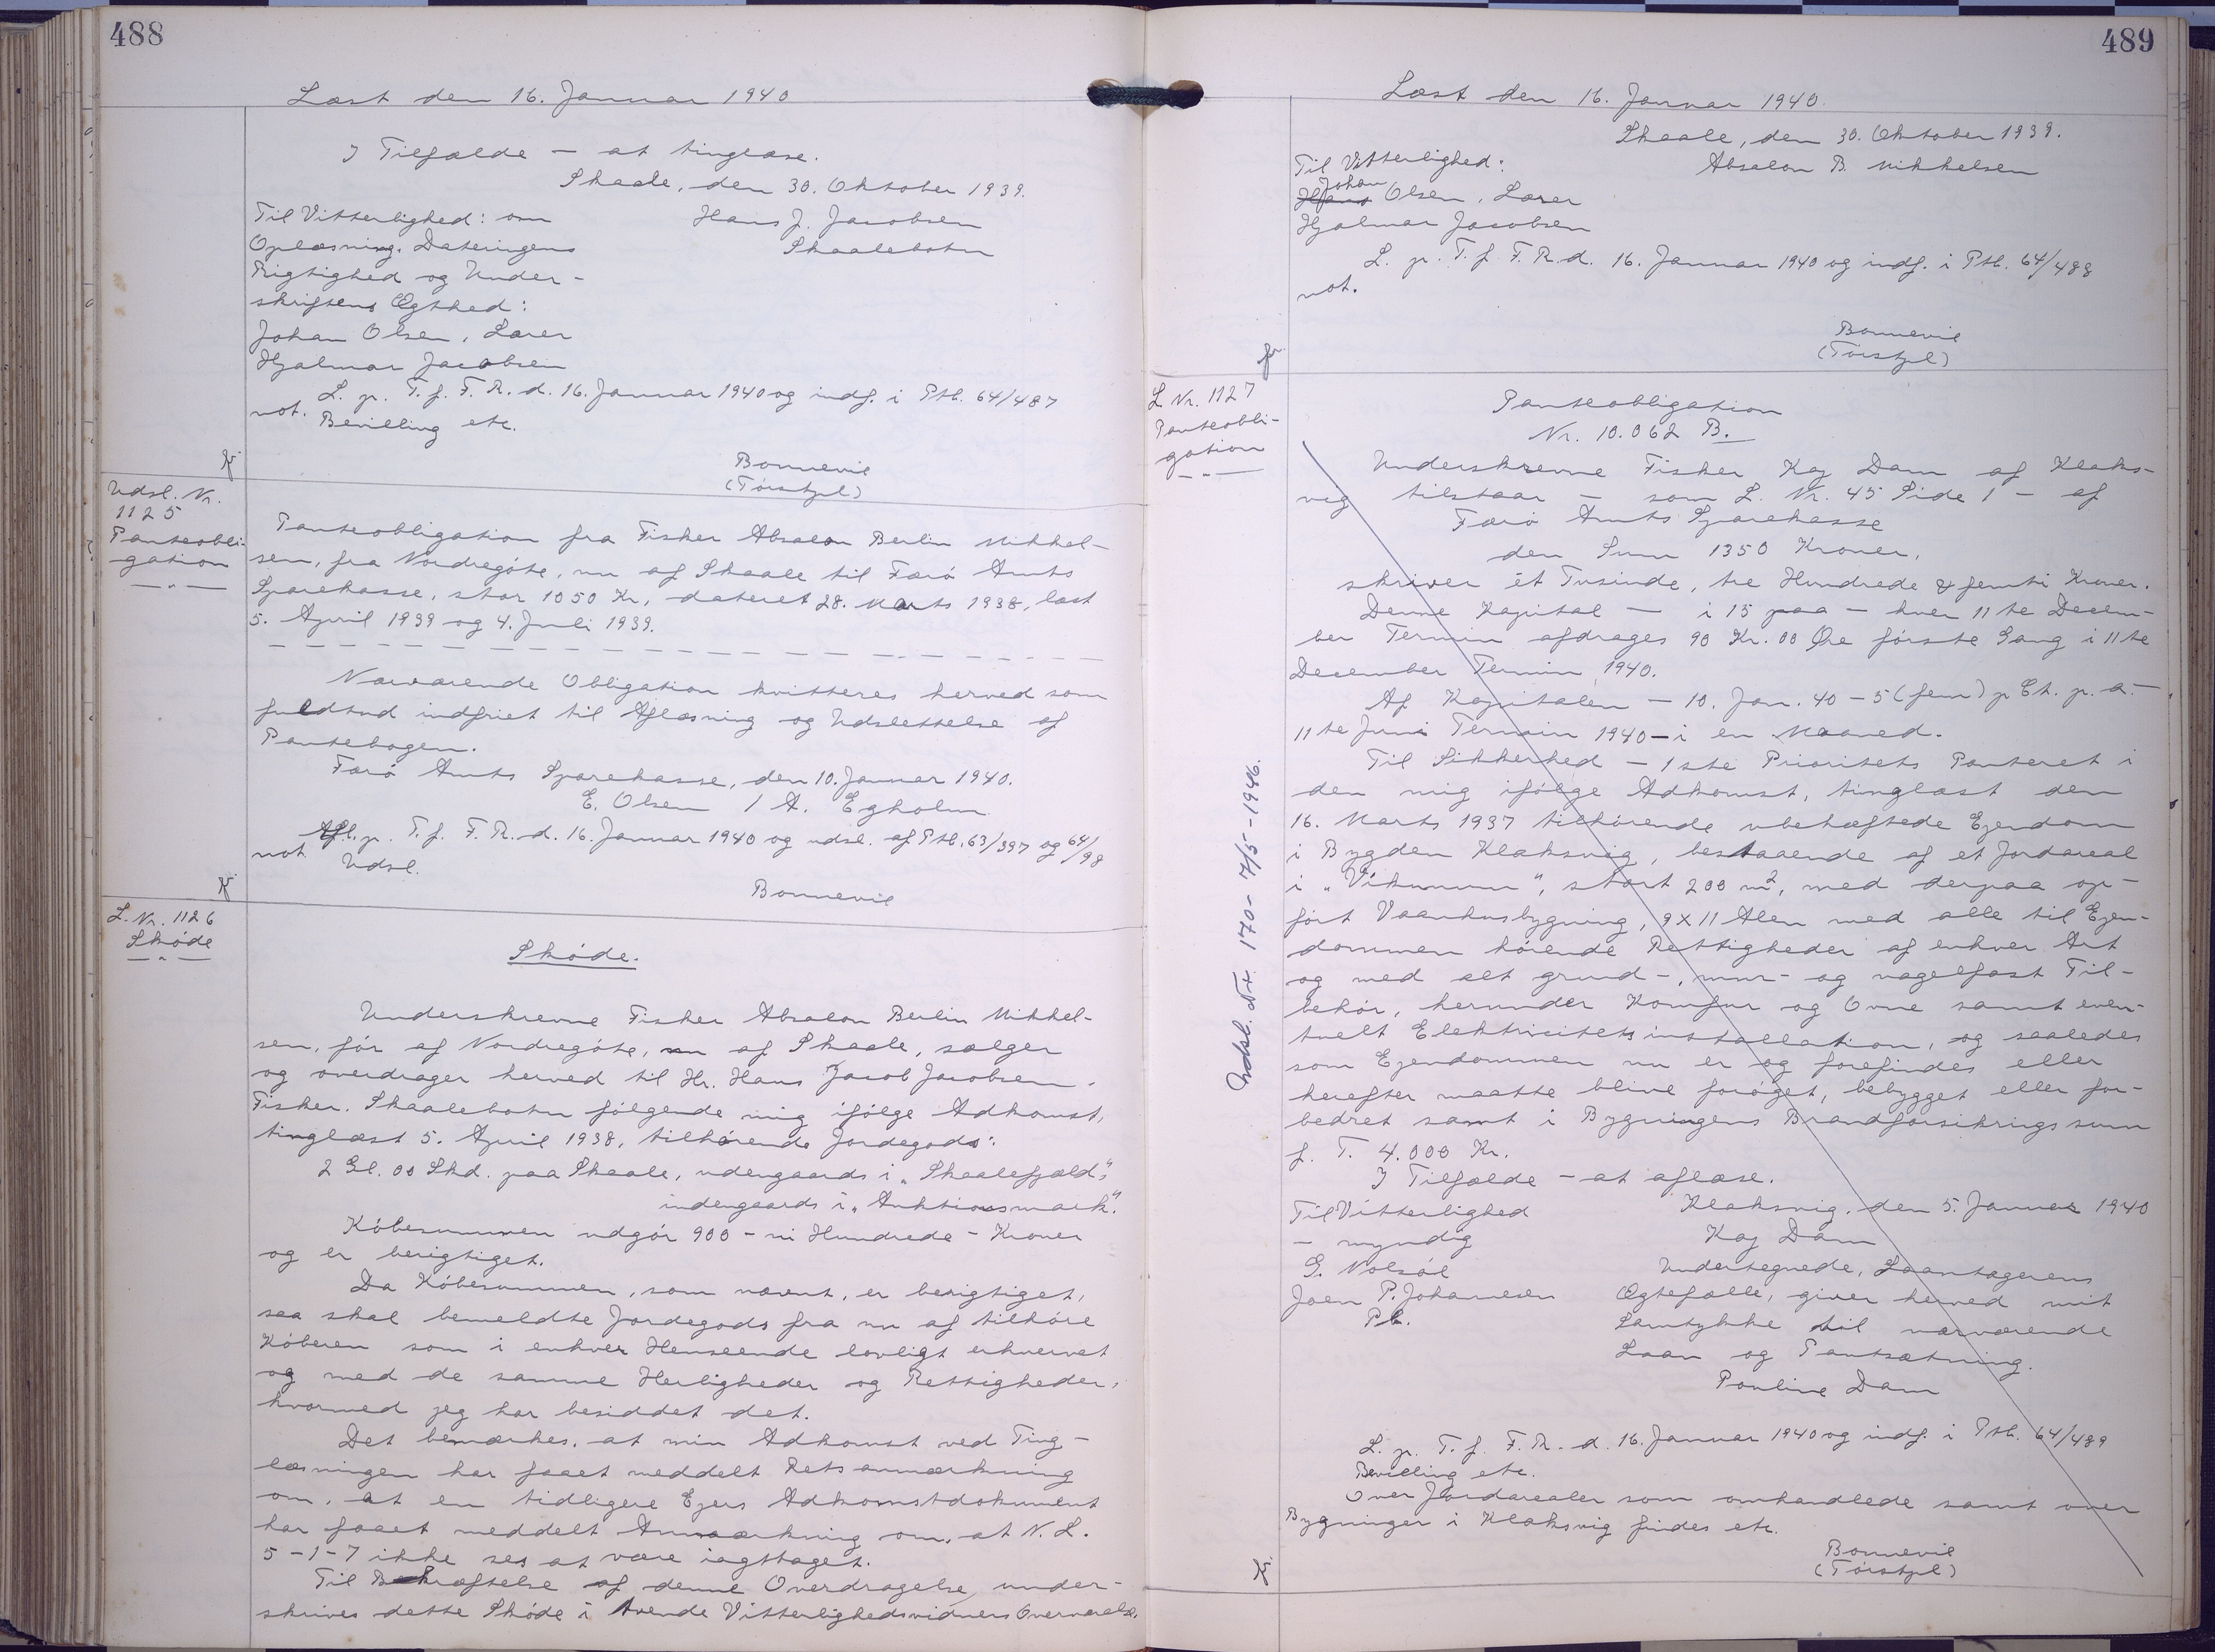 488
Læst den 16. Januar 1940
I Tilfælde — at tinglæse.
Skaale, den 30. Oktober 1939.
Til Vitterlighed: om
Oplæsning, Dateringens
Rigtighed og Under-
skriftens Ægthed:
Johan Olsen, Lærer
Hjalmar Jacobsen
Hans J. Jacobsen
Skaalebotn
L. p. T. f. F. R. d. 16. Januar 1940 og indf. i Ptb. 64/487
not. Bevilling etc.
Bonnevie
(Tórstpl)
K
Udsl. Nr.
1125
Panteobli-
gation
Panteobligation fra Fisker Absalon Berlin Mikkel-
sen, fra Nordregöte, nu af Skaale til Færö Amts
Sparekasse, stor 1050 Kr, dateret 28. Marts 1938, læst
5. April 1939 og 4. Juli 1939.
Nærværende Obligation kvitteres herved som
fuldtud indfriet til Aflæsning og Udslettelse af
Pantebogen.
Færö Amts Sparekasse, den 10. Januar 1940.
E. Olsen / A. Egholm
Afl. p. T. f. F. R. d. 16. Januar 1940 og udsl. af Ptb. 63/397 og 64/98
not Udsl.
Bonnevie
K
L. Nr. 1126
Sköde
Sköde.
Underskrevne Fisker Absalon Berlin Mikkel-
sen, för af Nordregöte, nu af Skaale, sælger
og overdrager herved til Hr. Hans Jacob Jacobsen.
Fisker. Skaalebotn fölgende mig ifölge Adkomst,
tinglæst 5. April 1938, tilhörende Jordegods:
2 Gl. 00 Skd. paa Skaale, udengaards i „Skaalefjæld",
indengaards i „Auktionsmark".
Köbesummen udgör 900 - ni Hundrede - Kroner
og er berigtiget.
Da Köbesummen, som nævnt, er berigtiget,
saa skal bemeldte Jordegods fra nu af tilhöre
Köberen som i enhver Henseende lovligt erhvervet
og med de samme Herligheder og Rettigheder,
hvormed jeg har besiddet det.
Det bemærkes, at min Adkomst ved Ting-
læsningen har faaet meddelt Retsanmærkning
om, at en tidligere Ejers Adkomstdokument
har faaet meddelt Anmærkning om, at N. L.
5-1-7 ikke ses at være iagttaget.
Til Bekræftelse af denne Overdragelse under-
skrives dette Sköde i tvende Vitterlighedsvidners Overværelse.
489
Læst den 16. Januar 1940.
Skaale, den 30. Oktober 1939.
Til Vitterlighed:
Absalon B. Mikkelsen
Johan
Hans Olsen, Lærer
Hjalmar Jacobsen
L. p. T. f. F. R. d. 16. Januar 1940 og indf. i Ptb. 64/488
not.
Bonnevie
(Tórstpl)
L. Nr. 1127
Panteobli-
gation
Panteobligation
Nr. 10.062 B.
Underskrevne Fisker Kaj Dam af Klaks-
vig tilstaar — som L. Nr. 45 Side 1 - af
Færö Amts Sparekasse
den Sum 1350 Kroner,
skriver ét Tusinde, tre Hundrede & femti Kroner.
Denne Kapital — i 15 paa - hver 11te Decem-
ber Termin afdrages 90 Kr. 00 Øre förste Gang i 11te
December Termin 1940.
Af Kapitalen — 10. Jan. 40 - 5 (fem) p Ct. p. a. -
11te Juni Termin 1940 - i en Maaned.
Til Sikkerhed - 1ste Prioritets Panteret i
den mig ifölge Adkomst, tinglæst den
16. Marts 1937 tilhörende ubehæftede Ejendom
i Bygden Klaksvig, bestaaende af et Jordareal
i „Vikunum", stort 200 m², med derpaa op-
fört Vaanhusbygning, 9 x 11 Alen med alle til Ejen-
dommen hörende Rettigheder af enhver Art
og med alt grund-, mur- og nagelfast Til-
behör, herunder Komfur og Ovne samt even-
tuelt Elektricitetsinstallation, og saaledes
som Ejendommen nu er og forefindes eller
herefter maatte blive foröget, bebygget eller for-
bedret samt i Bygningens Brandforsikringssum
f. T. 4.000 Kr.
I Tilfælde — at aflæse.
Til Vitterlighed
— myndig
G. Nolsöe
Joen P. Johannesen
Pb.
Klaksvig, den 5. Januar 1940
Kaj Dam
Undertegnede, Laantagerens
Ægtefælle, giver herved mit
Samtykke til nærværende
Laan og Pantsætning.
Pouline Dam
L. p. T. f. F. R. d. 16. Januar 1940 og indf. i Ptb. 64/489
Bevilling etc.
Over Jordarealer som omhandlede samt over
Bygninger i Klaksvig findes etc.
Bonnevie
(Tórstpl)
K
Udsl. Nr. 170 - 7/5-1946.